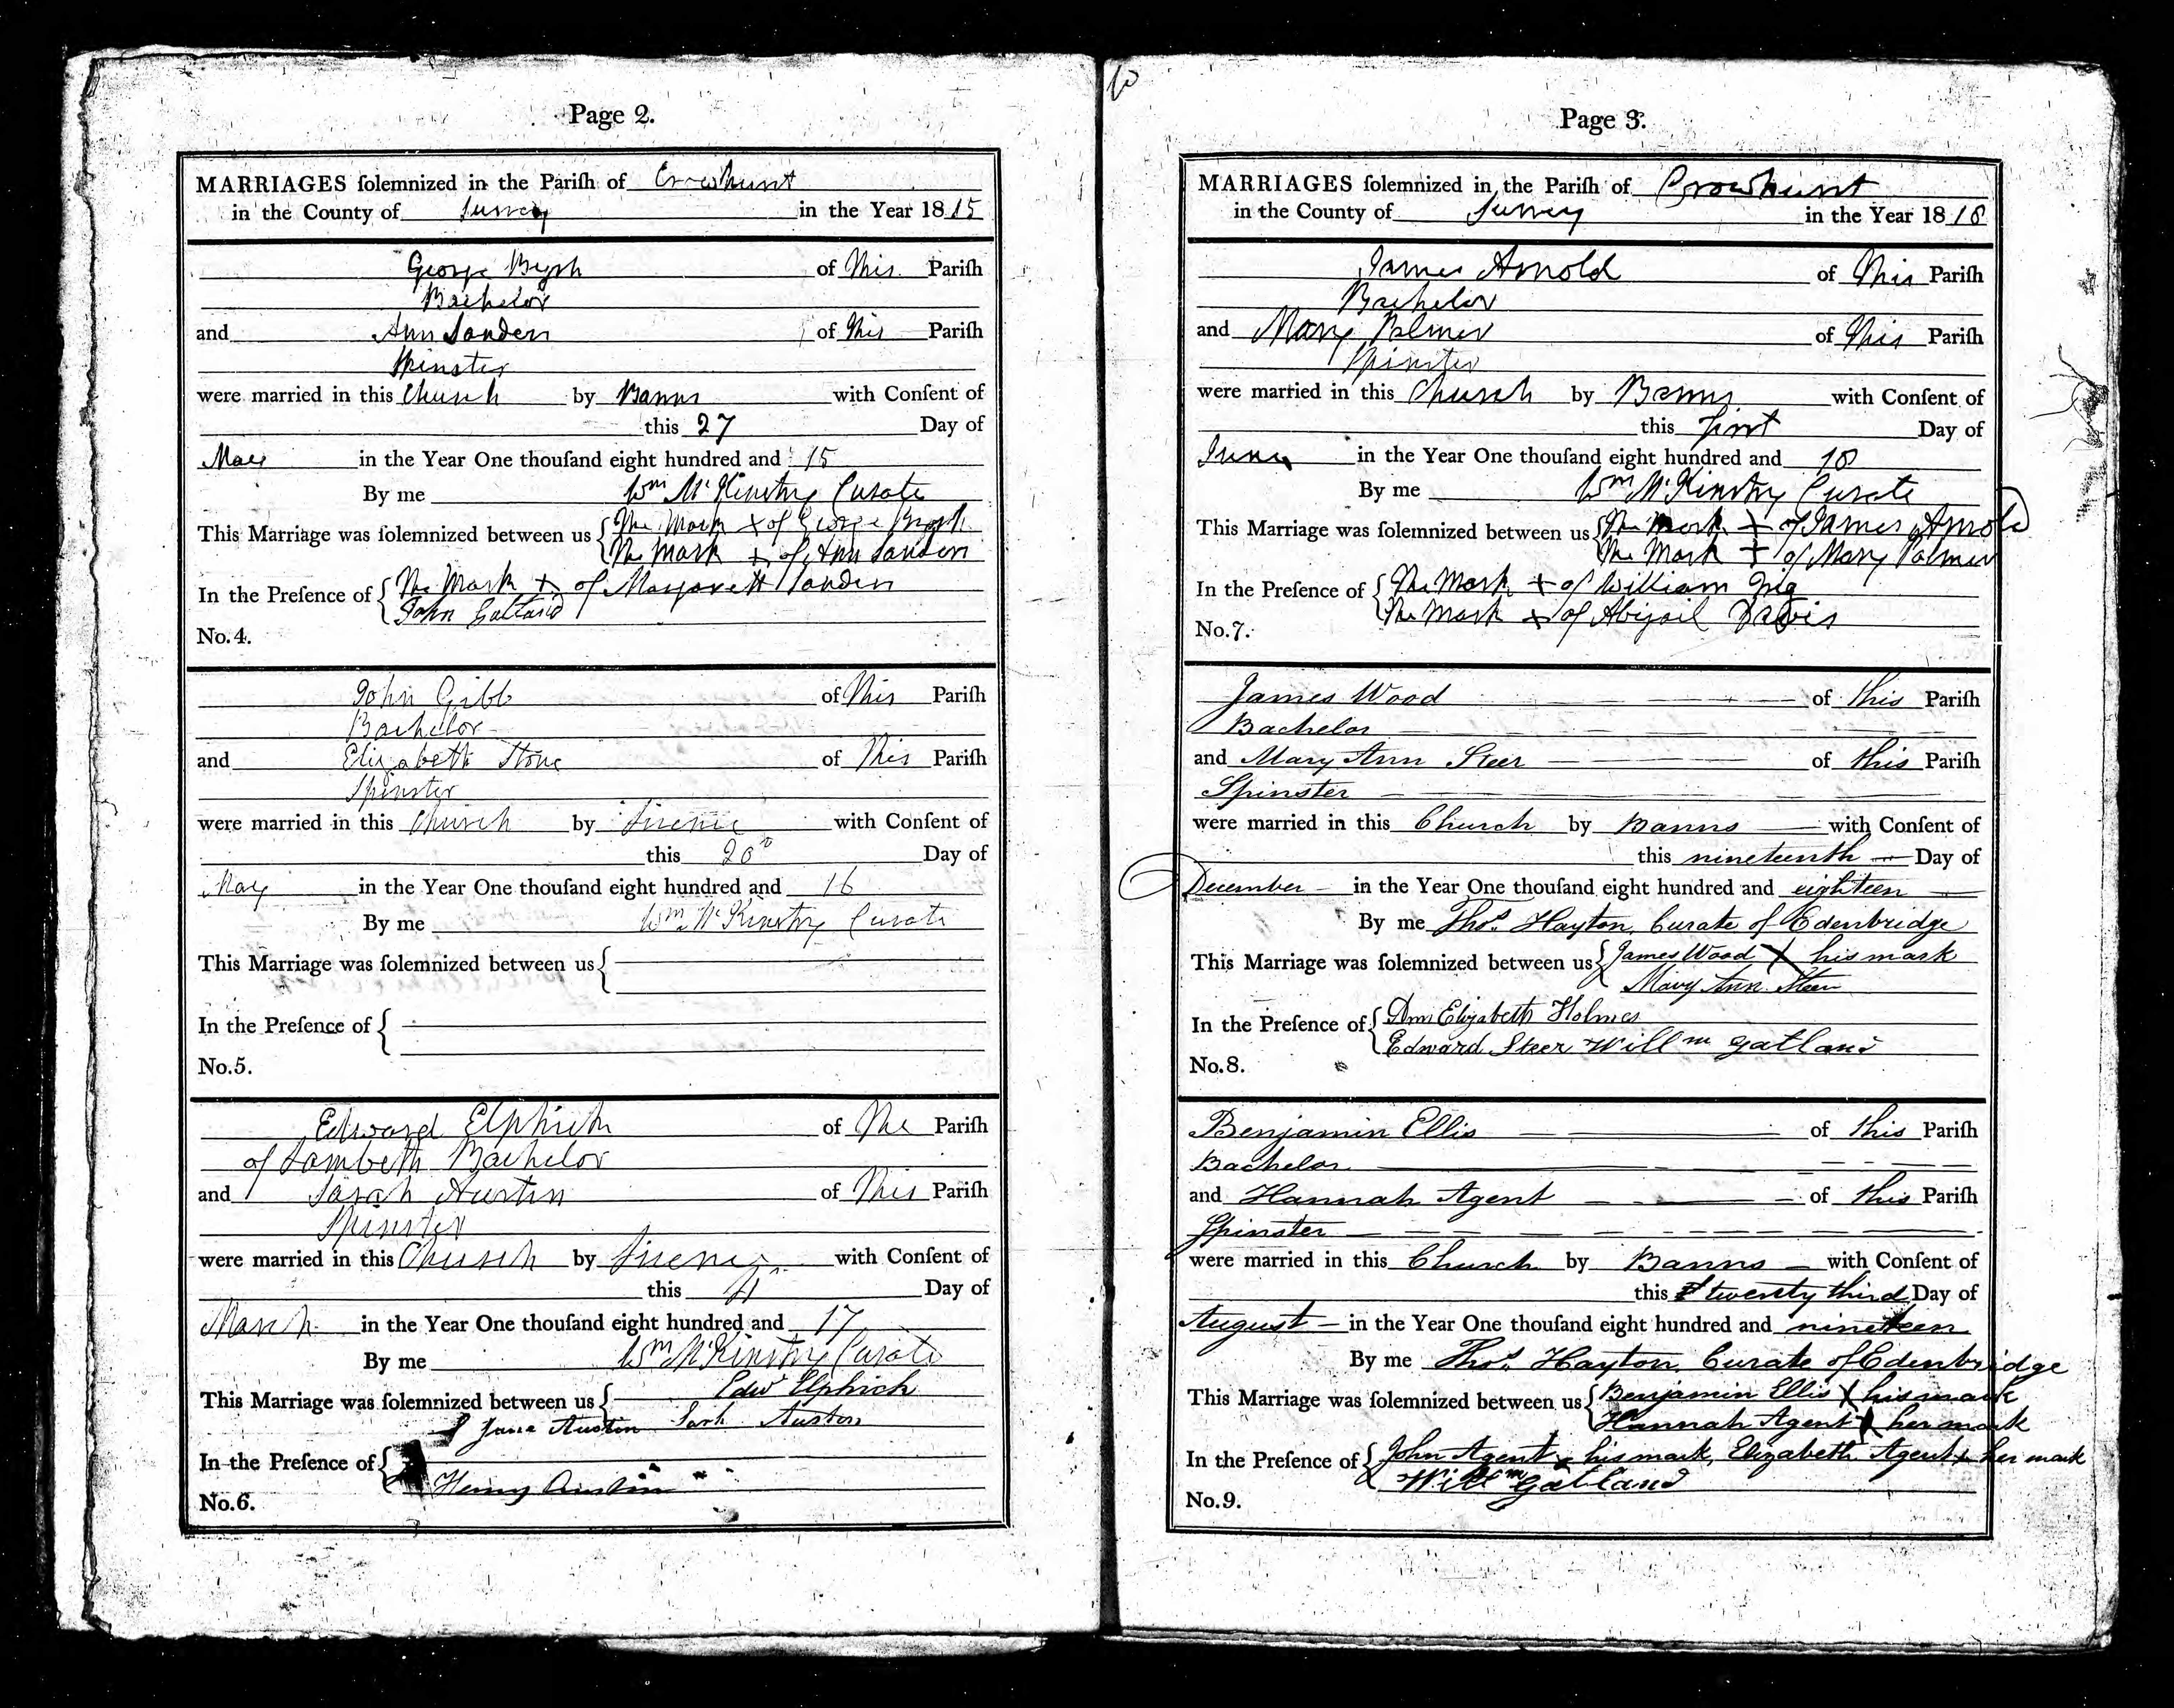 Page 2.
MARRIAGES ſolemnized in the Pariſh of Crowhurst
in the County of Surrey in the Year 1815
George Bysh of This Pariſh
Bachelor
and Ann Sanders of this Pariſh
Spinster
were married in this Church by Banns with Conſent of
this 27 Day of
May in the Year One thouſand eight hundred and 15
By me Wm McKinstry Curate
This Marriage was ſolemnized between us The Mark + of George Bysh
The Mark + of Ann Sanders
In the Preſence of The Mark + of Margarett Sanders
John Gatland
No. 4.
John Gibb of This Pariſh
Bachelor
and Elizabeth Stone of This Pariſh
Spinster
were married in this Church by Licence with Conſent of
this 20 Day of
May in the Year One thouſand eight hundred and 16
By me Wm McKinstry Curate
This Marriage was ſolemnized between us
In the Preſence of
No. 5.
Edward Elphick of The Pariſh
of Lambeth Bachelor
and Sarah Austin of This Pariſh
Spinster
were married in this Church by Licence with Conſent of
this Day of
March in the Year One thouſand eight hundred and 17
By me Wm McKinstry Curate
This Marriage was ſolemnized between us Edwd Elphick
Jane Austin Sarh Austen
In the Preſence of
Henry Austin
No. 6.
Page 3.
MARRIAGES ſolemnized in the Pariſh of Crowhurst
in the County of Surrey in the Year 1818
James Arnold of This Pariſh
Bachelor
and Mary Palmer of This Pariſh
Spinster
were married in this Church by Banns with Conſent of
this first Day of
June in the Year One thouſand eight hundred and 18
By me Wm McKinstry Curate
This Marriage was ſolemnized between us The Mark + of James Arnold
The Mark + of Mary Palmer
In the Preſence of The Mark + of William
The Mark + of Abigail Davis
No. 7.
James Wood of this Pariſh
Bachelor
and Mary Ann Steer of this Pariſh
Spinster
were married in this Church by Banns with Conſent of
this nineteenth Day of
December in the Year One thouſand eight hundred and eighteen
By me Thos. Hayton, Curate of Edenbridge
This Marriage was ſolemnized between us James Wood X his mark
Mary Ann Steer
In the Preſence of Ann Elizabeth Holmes
Edward Steer Willm Gatland
No. 8.
Benjamin Ellis of this Pariſh
Bachelor
and Hannah Agent of this Pariſh
Spinster
were married in this Church by Banns with Conſent of
this twenty third Day of
August in the Year One thouſand eight hundred and nineteen
By me Thos. Hayton, Curate of Edenbridge
This Marriage was ſolemnized between us Benjamin Ellis X his mark
Hannah Agent X her mark
In the Preſence of John Agent x his mark, Elizabeth Agent x her mark
Willm Gatland
No. 9.